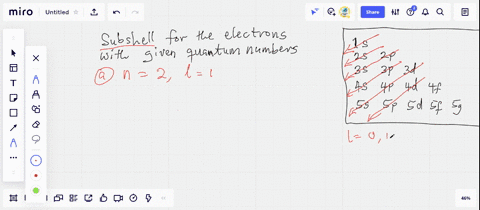 miro Untitled
Share
Subshell for the electrons
with given quantum numbers
a n = 2, l = 1
1s
2s 2p
3s 3p 3d
4s 4p 4d 4f
5s 5p 5d 5f 5g
l = 0, 1
46%